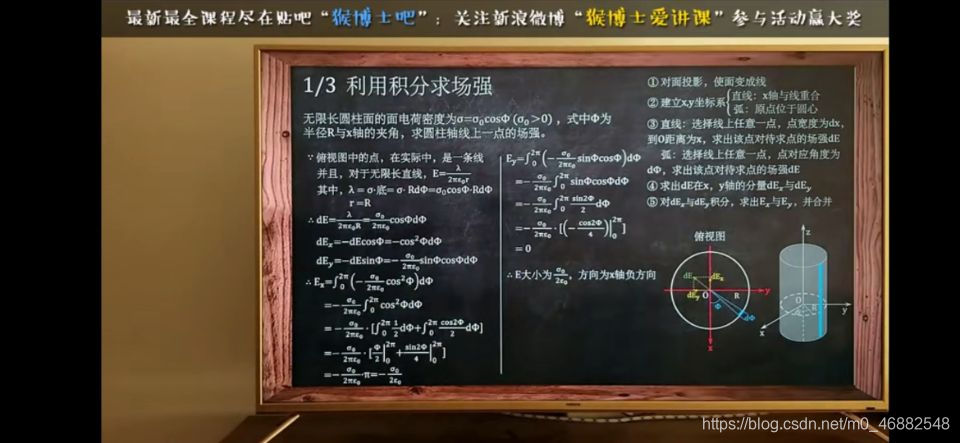 最新最全课程尽在贴吧“猴博士吧”；关注新浪微博“猴博士爱讲课”参与活动赢大奖
1/3 利用积分求场强
无限长圆柱面的面电荷密度为σ=σ₀cosΦ (σ₀>0)，式中Φ为
半径R与x轴的夹角，求圆柱轴线上一点的场强。
∵ 俯视图中的点，在实际中，是一条线
并且，对于无限长直线，E=λ/2πε₀r
其中，λ = σ·底= σ· RdΦ=σ₀cosΦ·RdΦ
r =R
∴ dE=λ/2πε₀R=σ₀/2πε₀cosΦdΦ
dEₓ=−dEcosΦ=−cos²ΦdΦ
dEᵧ=−dEsinΦ=−σ₀/2πε₀sinΦcosΦdΦ
∴ Eₓ=∫₀²π(−σ₀/2πε₀cos²Φ)dΦ
=−σ₀/2πε₀∫₀²πcos²ΦdΦ
=−σ₀/2πε₀·[∫₀²π1/2dΦ+∫₀²πcos2Φ/2dΦ]
=−σ₀/2πε₀·[Φ/2|₀²π+sin2Φ/4|₀²π]
=−σ₀/2πε₀·π=−σ₀/2ε₀
Eᵧ=∫₀²π(−σ₀/2πε₀sinΦcosΦ)dΦ
=−σ₀/2πε₀∫₀²πsinΦcosΦdΦ
=−σ₀/2πε₀∫₀²πsin2Φ/2dΦ
=−σ₀/2πε₀·[(−cos2Φ/4)|₀²π]
= 0
∴ E大小为σ₀/2ε₀，方向为x轴负方向
① 对面投影，使面变成线
② 建立x,y坐标系{直线：x轴与线重合
弧：原点位于圆心
③ 直线：选择线上任意一点，点宽度为dx，
到O距离为x，求出该点对待求点的场强dE
弧：选择线上任意一点，点对应角度为
dΦ，求出该点对待求点的场强dE
④ 求出dE在x，y轴的分量dEₓ与dEᵧ
⑤ 对dEₓ与dEᵧ积分，求出Eₓ与Eᵧ，并合并
俯视图
dE
dEₓ
dEᵧ
O
R
y
Φ
dΦ
x
z
O
R
y
x
https://blog.csdn.net/m0_46882548